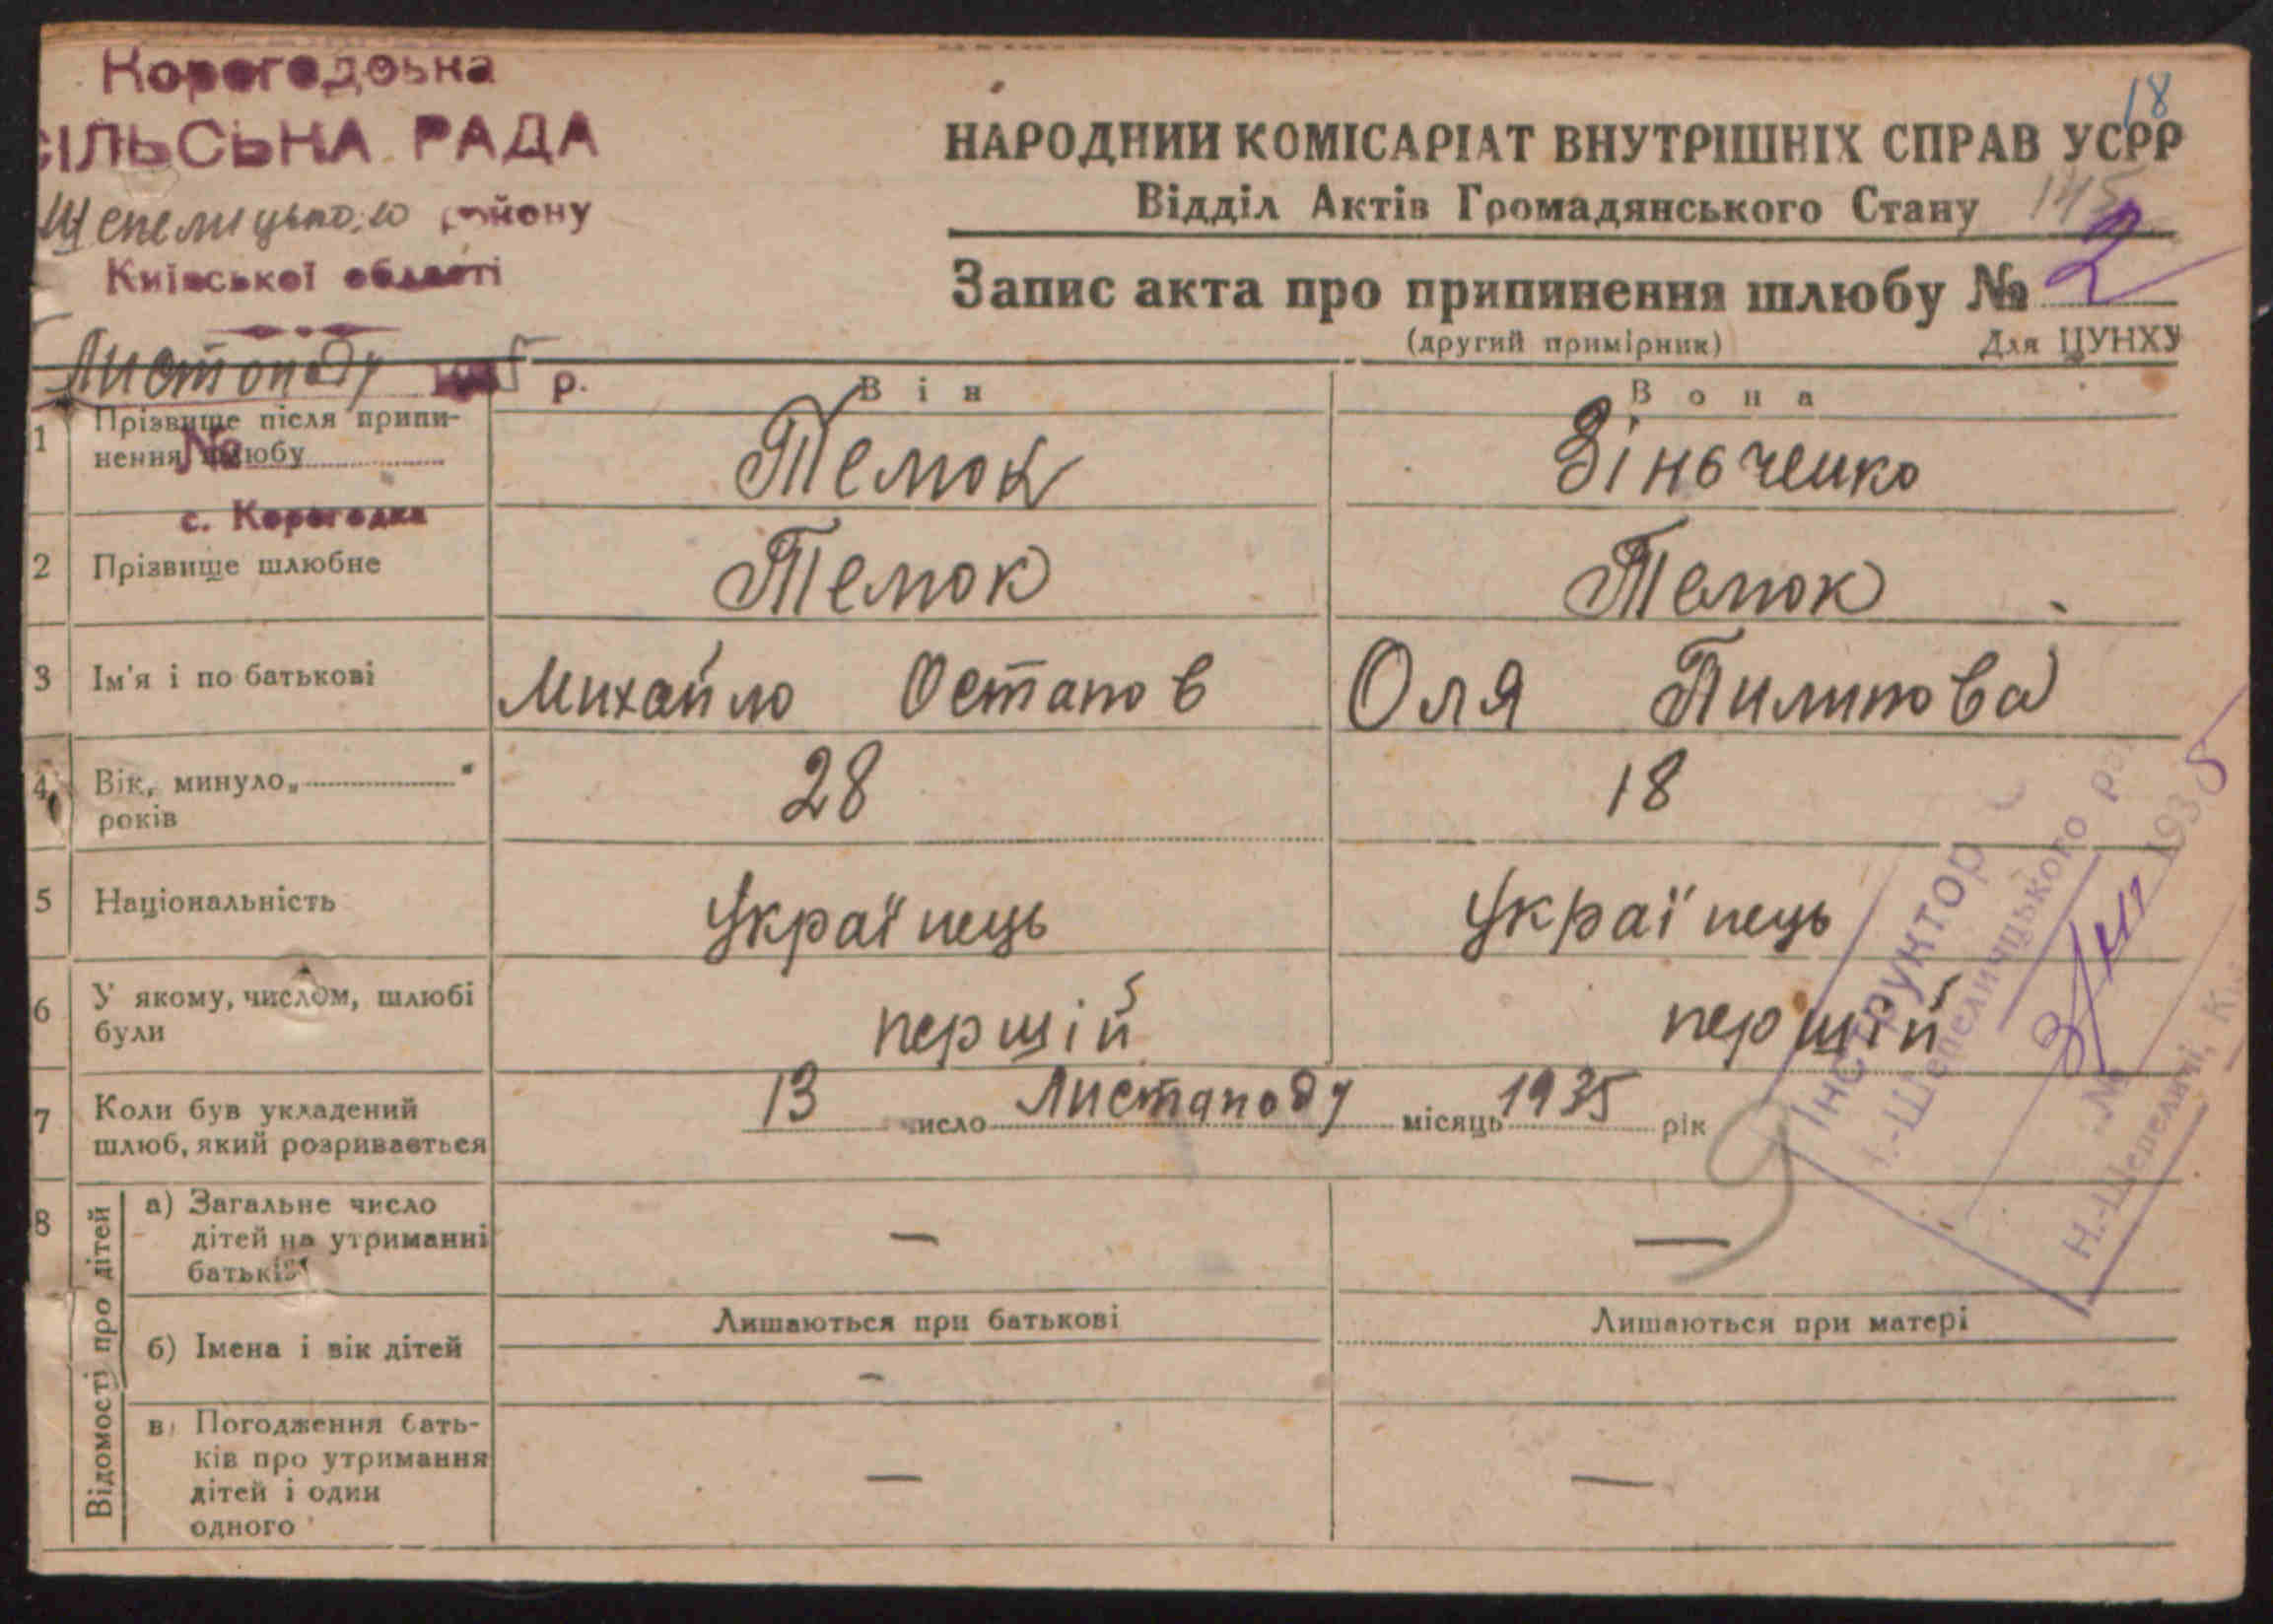 Корогодська
СІЛЬСЬКА РАДА
Шепелицького району
Київської області
Листопаду р.
№
с. Корогодка
18
НАРОДНИЙ КОМІСАРІАТ ВНУТРІШНІХ СПРАВ УСРР
Відділ Актів Громадянського Стану 145
Запис акта про припинення шлюбу № 2
(другий примірник) Для ЦУНХУ
Він Вона
1 Прізвище після припи-
нення шлюбу Темок Зіньченко
2 Прізвище шлюбне Темок Темок
3 Ім'я і по батькові Михайло Остапов Оля Пилипова
4 Вік, минуло „ "
років 28 18
5 Національність Українець Українець
6 У якому, числом, шлюбі
були першій першій
7 Коли був укладений
шлюб, який розривається 13 число Листаподу місяць 1935 рік
8 Відомості про дітей
а) Загальне число
дітей на утриманні
батьків — —
б) Імена і вік дітей
Лишаються при батькові Лишаються при матері
–
в) Погодження бать-
ків про утримання
дітей і один
одного — —
Інструктор
Н.-Шепелицького
1935
№
Н.-Шепеличі,
9